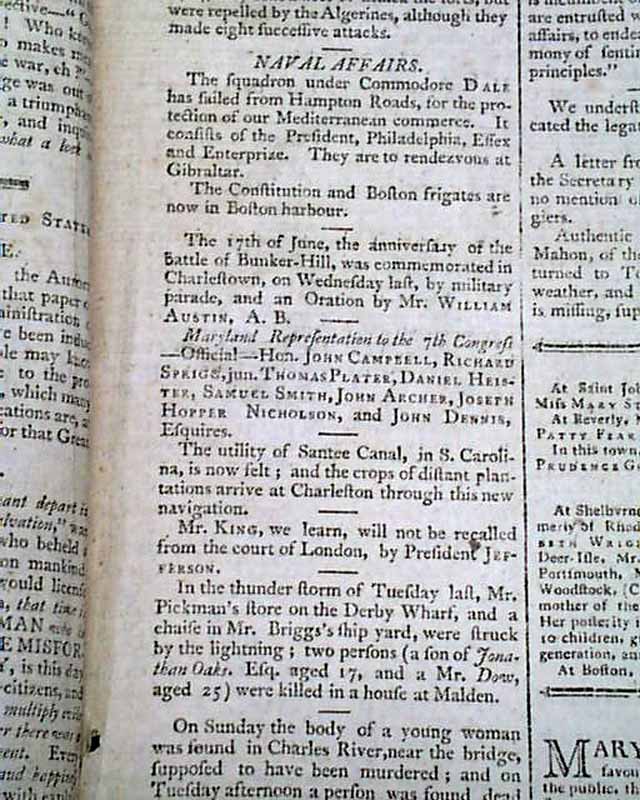 ective—"
! Who kn
o makes me
e war, eh ?"
ge was out
a triumph
, and inqui
what a lo
TED STATE
E.
the Auro
that paper
ministration
e been indu
ple may kno
e to the pro
, which many
cations are, a
or that Grea
eant depart i
elvation," was
who beheld
on mankind
would licens
, that time i
MAN who
E MISFOR
Y, is this day
citizens, and
multiply
r there was
sent. Every
and happi
with
were repelled by the Algerines, although they
made eight ſucceſſive attacks.
NAVAL AFFAIRS.
The ſquadron under Commodore DALE
has ſailed from Hampton Roads, for the pro-
tection of our Mediterranean commerce. It
conſiſts of the Preſident, Philadelphia, Eſſex
and Enterprize. They are to rendezvous at
Gibraltar.
The Conſtitution and Boſton frigates are
now in Boſton harbour.
The 17th of June, the anniverſary of the
Battle of Bunker-Hill, was commemorated in
Charleſtown, on Wedneſday laſt, by military
parade, and an Oration by Mr. WILLIAM
AUSTIN, A. B.
Maryland Repreſentation to the 7th Congreſs
—Official—Hon. JOHN CAMPBELL, RICHARD
SPRIGG, jun. THOMAS PLATER, DANIEL HEIS-
TER, SAMUEL SMITH, JOHN ARCHER, JOSEPH
HOPPER NICHOLSON, and JOHN DENNIS,
Eſquires.
The utility of Santee Canal, in S. Caroli-
na, is now felt ; and the crops of diſtant plan-
tations arrive at Charleſton through this new
navigation.
Mr. KING, we learn, will not be recalled
from the court of London, by Preſident JEF-
FERSON.
In the thunder ſtorm of Tueſday laſt, Mr.
Pickman's ſtore on the Derby Wharf, and a
chaiſe in Mr. Briggs's ſhip yard, were ſtruck
by the lightning ; two perſons (a ſon of Jona-
than Oaks. Eſq. aged 17, and a Mr. Dow,
aged 25) were killed in a houſe at Malden.
On Sunday the body of a young woman
was found in Charles River, near the bridge,
ſuppoſed to have been murdered ; and on
Tueſday afternoon a perſon was found dead
are entruſted w
affairs, to endea
mony of ſentim
principles."
We underſt
cated the legat
A letter fro
the Secretary
no mention of
giers.
Authentic
Mahon, of the
turned to T
weather, and
is miſſing, ſup
At Saint Joh
Miſs MARY ST
At Beverly, M
PATTY PEAR
In this town,
PRUDENCE G
At Shelburne
merly of Rhod
BETH WRIG
Deer-Iſle, Mr.
Portſmouth, N
Woodſtock, (C
mother of the
Her poſterity i
to children, g
generation, an
At Boſton,
MARY
favou
the public, th